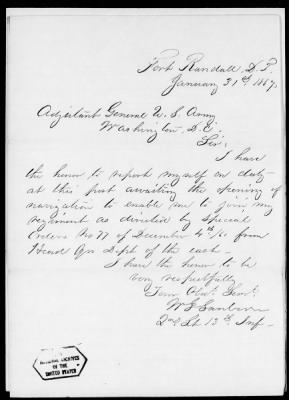 Fort Randall, D. T.
January 31st 1867.
Adjutant General U. S. Army
Washington, D.C.
Sir;
I have
the honor to report myself on duty
at this post awaiting the opening of
navigation to enable me to join my
regiment as directed by Special
Orders No 77 of December 4th /66 from
Head Qrs Dept of the east.
I have the honor to be
very respectfully
Your Obdt. Servt.
2nd Lt. 13th Inf
NATIONAL ARCHIVES
OF THE
UNITED STATES